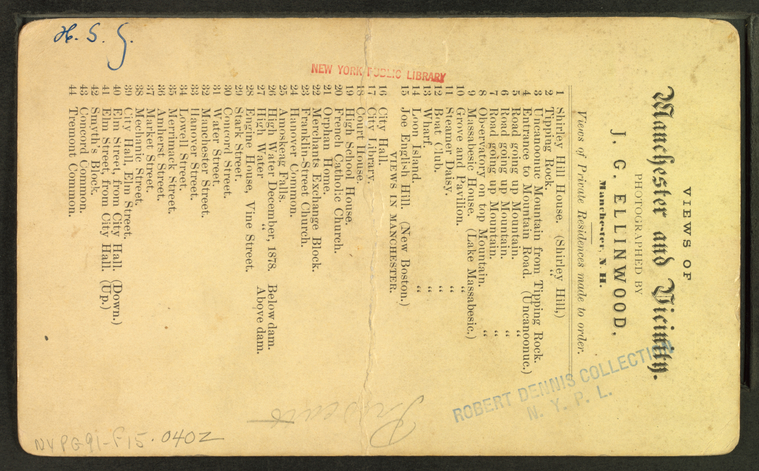 VIEWS OF
Manchester and Vicinity.
PHOTOGRAPHED BY
J. G. ELLINWOOD,
Manchester, N. H.
Views of Private Residences made to order.
1 Shirley Hill House. (Shirley Hill.)
2 Tipping Rock. "
3 Uncanoonue Mountain from Tipping Rock.
4 Entrance to Mountain Road. (Uncanoonue.)
5 Road going up Mountain. "
6 Road going up Mountain. "
7 Road going up Mountain. "
8 Observatory on top Mountain. "
9 Massabesic House. (Lake Massabesic.)
10 Grove and Pavilion. "
11 Steamer Daisy. "
12 Boat Club. "
13 Wharf. "
14 Loon Island. "
15 Joe English Hill. (New Boston.)
VIEWS IN MANCHESTER.
16 City Hall.
17 City Library.
18 Court House.
19 High School House.
20 French Catholic Church.
21 Orphan Home.
22 Merchants Exchange Block.
23 Franklin-Street Church.
24 Hanover Common.
25 Amoskeag Falls.
26 High Water December, 1878. Below dam.
27 High Water " Above dam.
28 Engine House, Vine Street.
29 Stark Street.
30 Concord Street.
31 Water Street.
32 Manchester Street.
33 Hanover Street.
34 Lowell Street.
35 Merrimack Street.
36 Amherst Street.
37 Market Street.
38 Mechanic Street.
39 City Hall, Elm Street.
40 Elm Street, from City Hall. (Down.)
41 Elm Street, from City Hall. (Up.)
42 Smyth's Block.
43 Concord Common.
44 Tremont Common.
H. S. G.
NEW YORK PUBLIC LIBRARY
ROBERT DENNIS COLLECTION
N. Y. P. L.
NYPG91-F15.0402